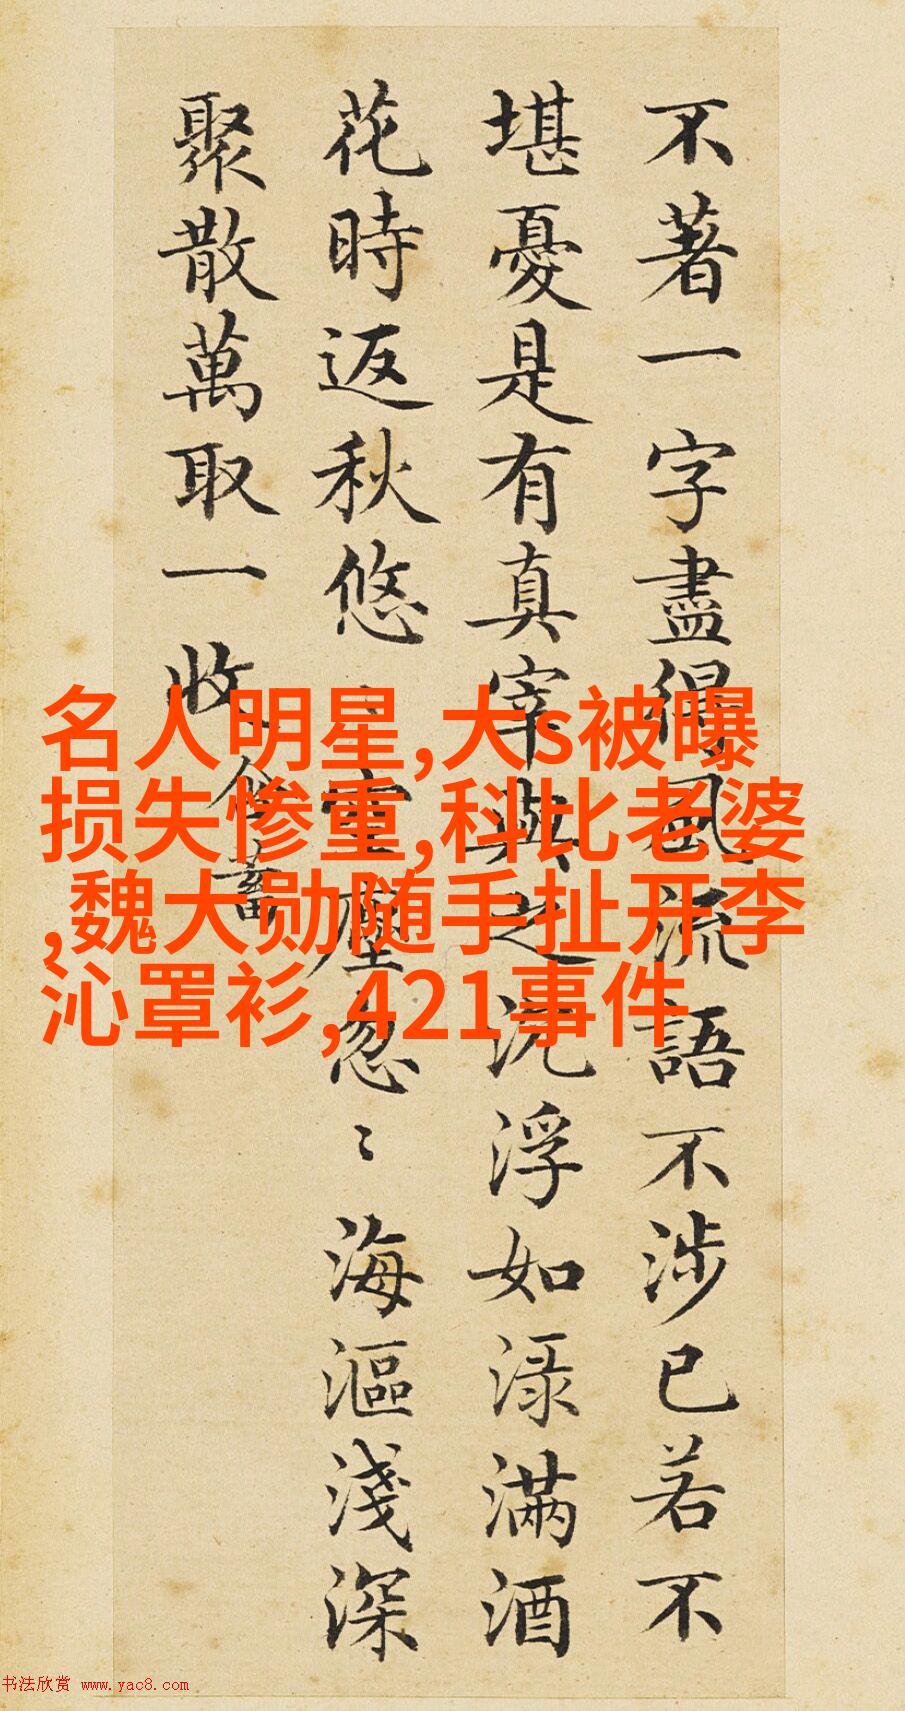 不著一字盡得風流語不涉已若不
堪憂是有真宰與之沉浮如渌滿酒
花時返秋悠〻空塵忽〻海漚淺深
聚散萬取一收 含蓄
名人明星,大s被曝
损失惨重,科比老婆
,魏大勋随手扯开李
沁罩衫,421事件
书法欣赏 www.yac8.com